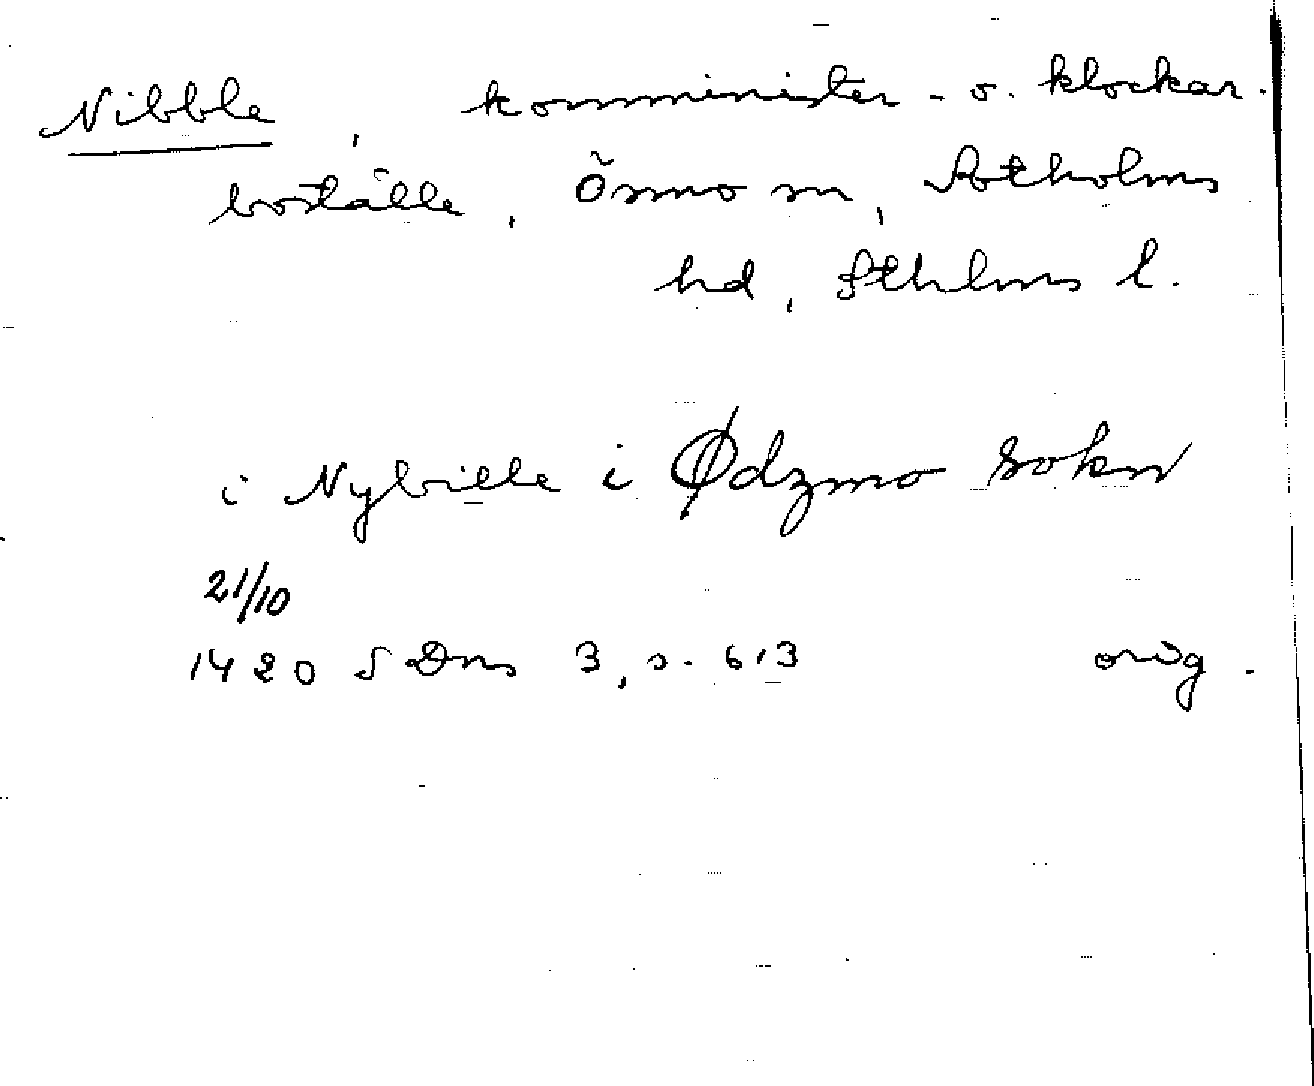 Nibble, komminister- o. klockar-
boställe, Ösmo sn, Sotholms
hd, Sthlms l.
i Nybille i Ødzmo sokn
21/10
1420 SDns 3, s. 613 orig.